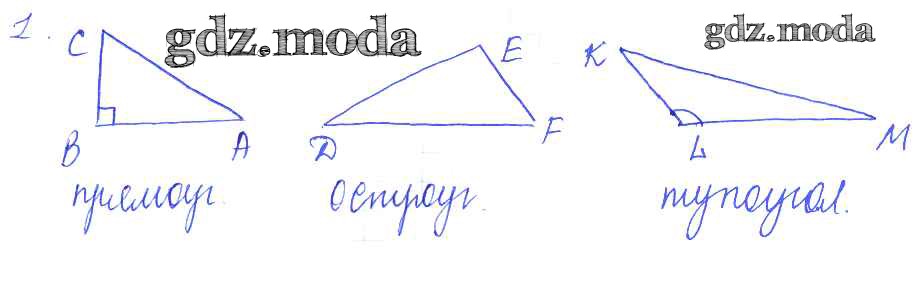 1. C gdz.moda E K gdz.moda
B A D F L M
прямоуг. остроуг. тупоугол.